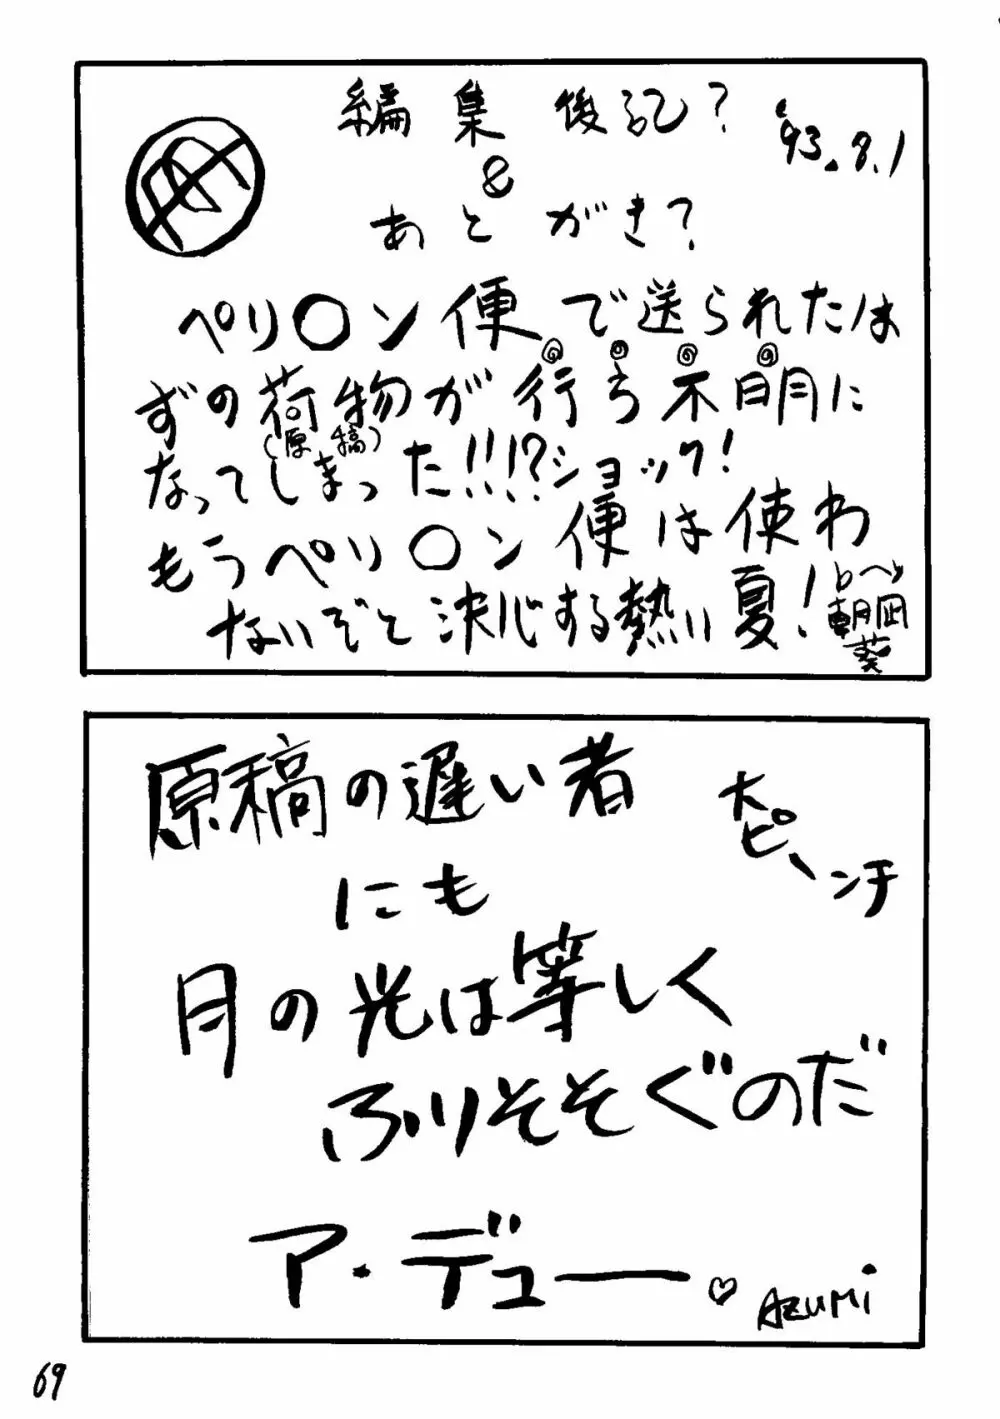 編集後記?
'93.8.1
&
あとがき?
ペリ〇ン便で送られたは
ずの荷物が行ち不明に
(原稿)
なってしまった!!!?ショック!
もうペリ〇ン便は使わ
ないぞと決心する熱い夏!
朝凪
葵
原稿の遅い者
にも
大ピーンチ
月の光は等しく
ふりそそぐのだ
ア・デュー♡
AZUMi
69